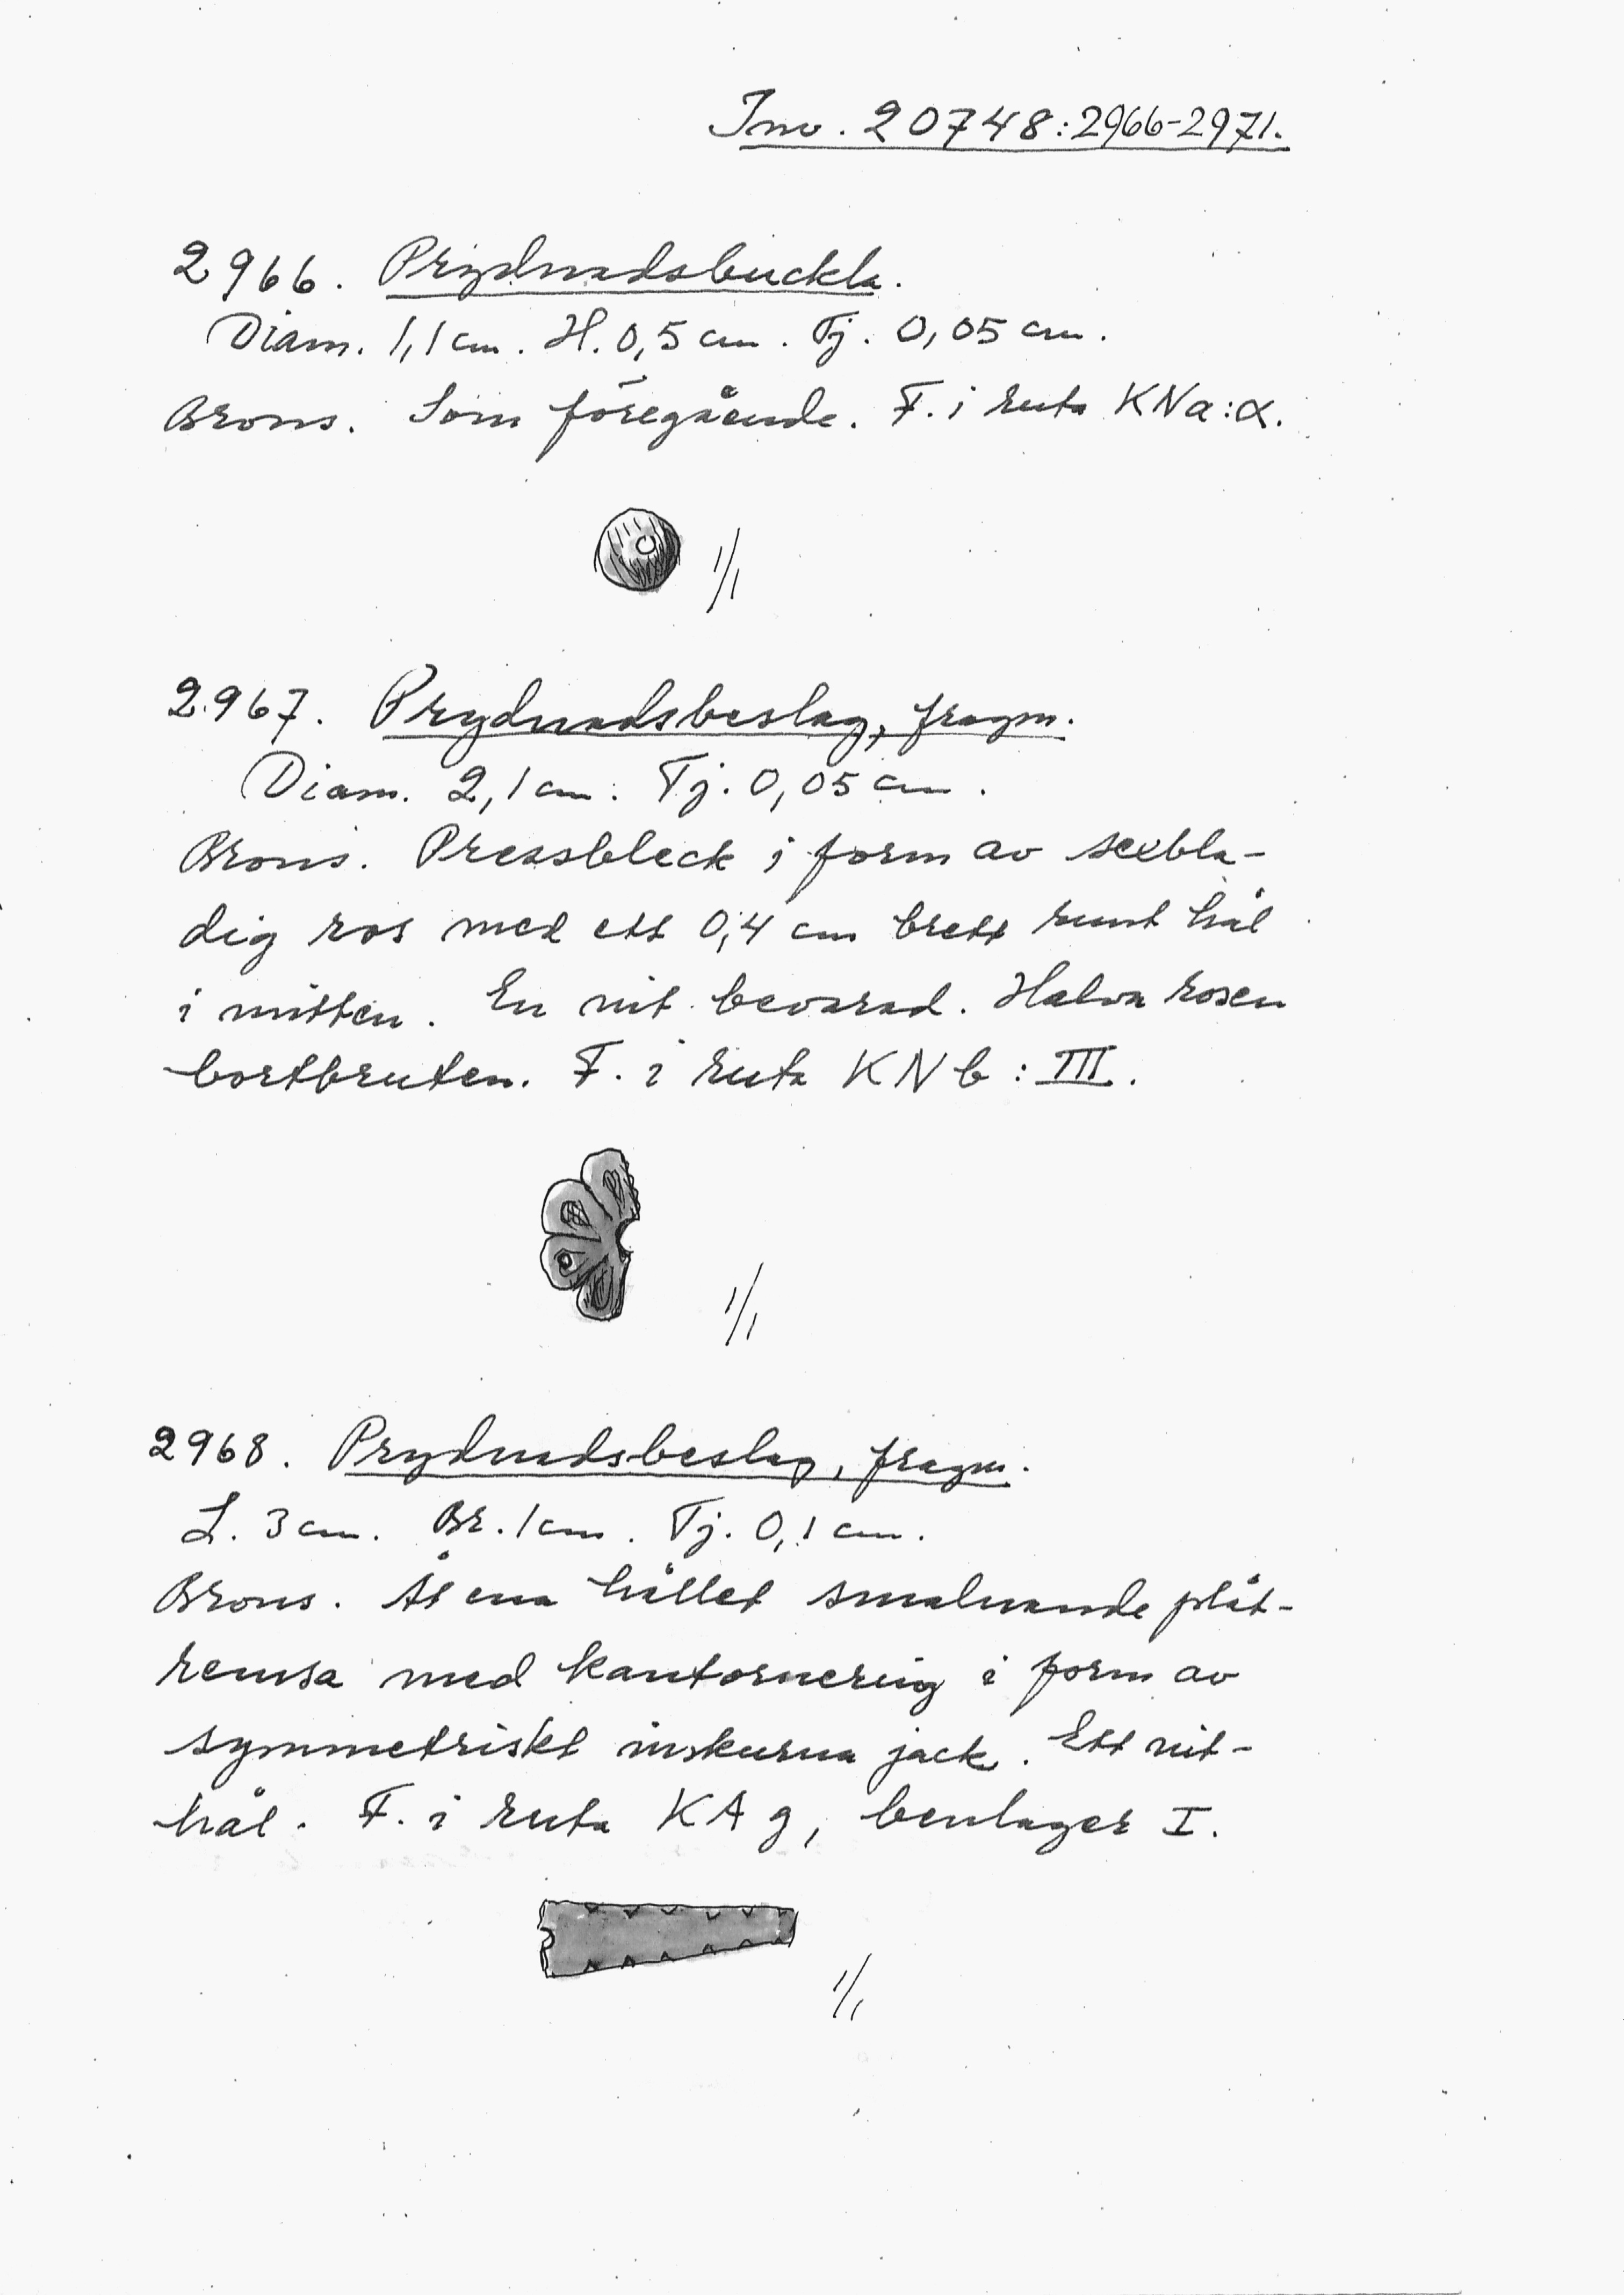 Inv. 20748:2966-2971.
2966. Prydnadsbuckla.
Diam. 1,1 cm. H. 0,5 cm. Tj. 0,05 cm.
Brons. Som föregående. F. i ruta KNa:α.
1/1
2967. Prydnadsbeslag, fragm.
Diam. 2,1 cm. Tj. 0,05 cm.
Brons. Pressbleck i form av sexbla-
dig ros med ett 0,4 cm brett runt hål
i mitten. En nit bevarad. Halva rosen
bortbruten. F. i ruta KNb: III.
1/1
2968. Prydnadsbeslag, fragm.
L. 3 cm. Br. 1 cm. Tj. 0,1 cm.
Brons. Åt ena hållet smalnande plåt-
remsa med kantornering i form av
symmetriskt inskurna jack. Ett nit-
hål. F. i ruta KAg, benlager I.
1/1